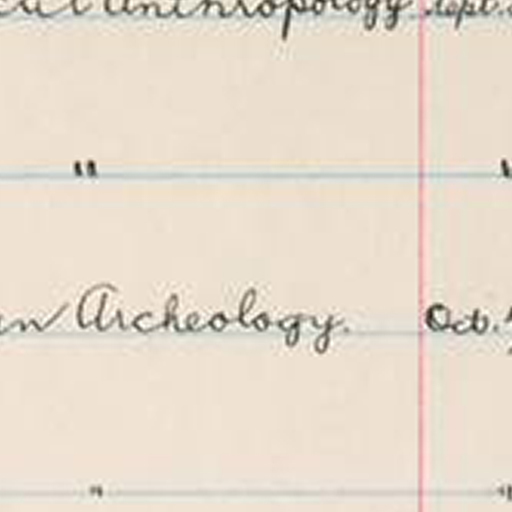 Anthropology Sept.
" "
Archeology. Oct.
" "